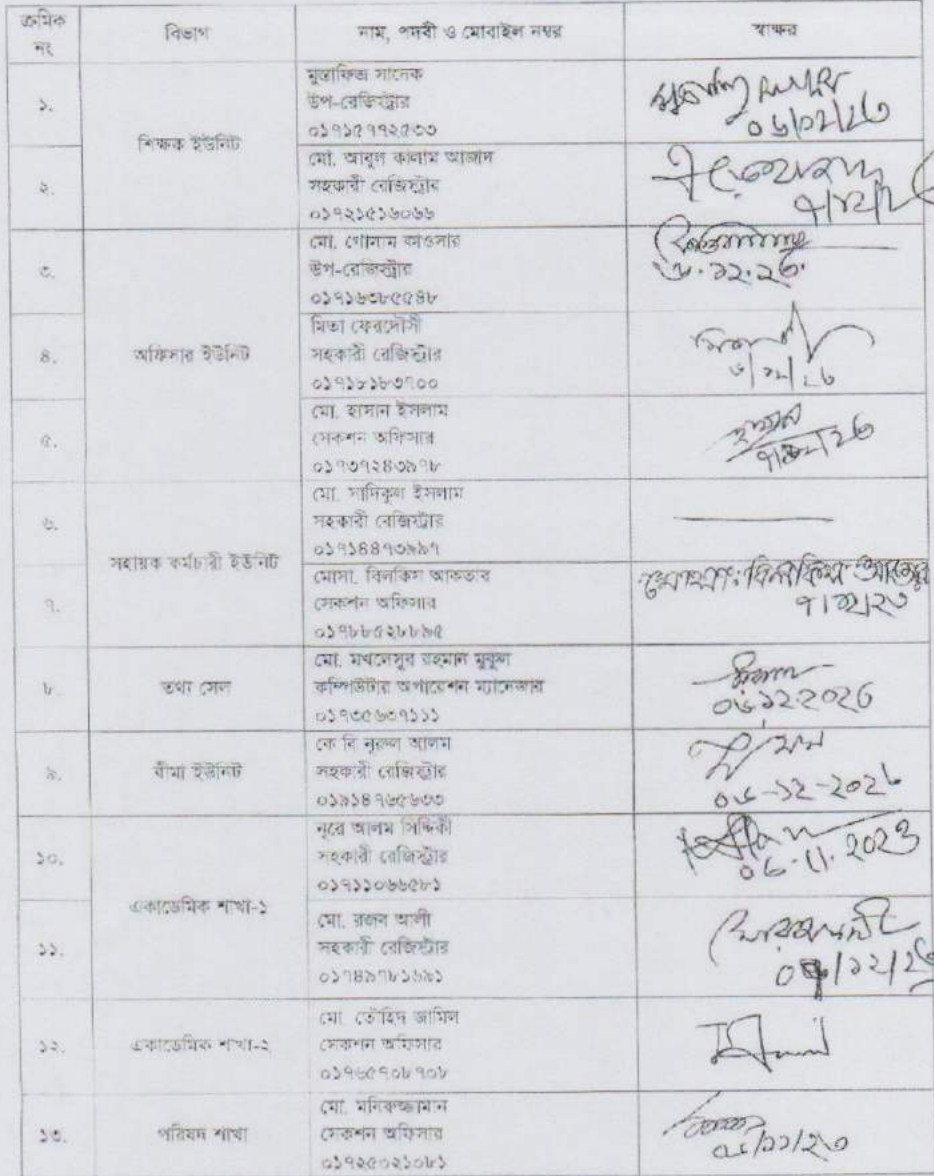 ক্রমিক নং
বিভাগ
নাম, পদবী ও মোবাইল নম্বর
স্বাক্ষর
১.
শিক্ষক ইউনিট
মুস্তাফিজ সাদেক
উপ-রেজিস্ট্রার
০১৭১৫৭৭২৫৩৩
০৬/১২/২৩
২.
মো. আবুল কালাম আজাদ
সহকারী রেজিস্ট্রার
০১৭২১৫১৬০৬৬
৩.
অফিসার ইউনিট
মো. গোলাম কাওসার
উপ-রেজিস্ট্রার
০১৭১৬৩৮৫৫৪৮
৬.১২.২৩.
৪.
মিতা ফেরদৌসী
সহকারী রেজিস্ট্রার
০১৭১৮১৮৩৭০০
৫.
মো. হাসান ইসলাম
সেকশন অফিসার
০১৭৩৭২৪৩৯৭৮
৬.
সহায়ক কর্মচারী ইউনিট
মো. সাদিকুল ইসলাম
সহকারী রেজিস্ট্রার
০১৭১৪৪৭৩৯৯৭
৭.
মোসা. বিলকিস আকতার
সেকশন অফিসার
০১৭৮৮৫২৮৮৯৫
মোসাঃ বিলকিস আক্তার
৭/১২/২৩
৮.
তথ্য সেল
মো. মখলেসুর রহমান মুকুল
কম্পিউটার অপারেশন ম্যানেজার
০১৭৩৫৬৩৭১১১
০৬.১২.২০২৩
৯.
বীমা ইউনিট
কে বি নূরুল আলম
সহকারী রেজিস্ট্রার
০১৯১৪৭৬৫৬৩৩
০৬-১২-২০২৩
১০.
একাডেমিক শাখা-১
নূরে আলম সিদ্দিকী
সহকারী রেজিস্ট্রার
০১৭১১০৬৬৫৮১
06.11.2023
১১.
মো. রজব আলী
সহকারী রেজিস্ট্রার
০১৭৪৯৭৮১৬৯১
১২.
একাডেমিক শাখা-২
মো. তৌহিদ জামিল
সেকশন অফিসার
০১৭৬৫৭০৮৭০৮
১৩.
পরিষদ শাখা
মো. মনিরুজ্জামান
সেকশন অফিসার
০১৭২৫০২১০৮১